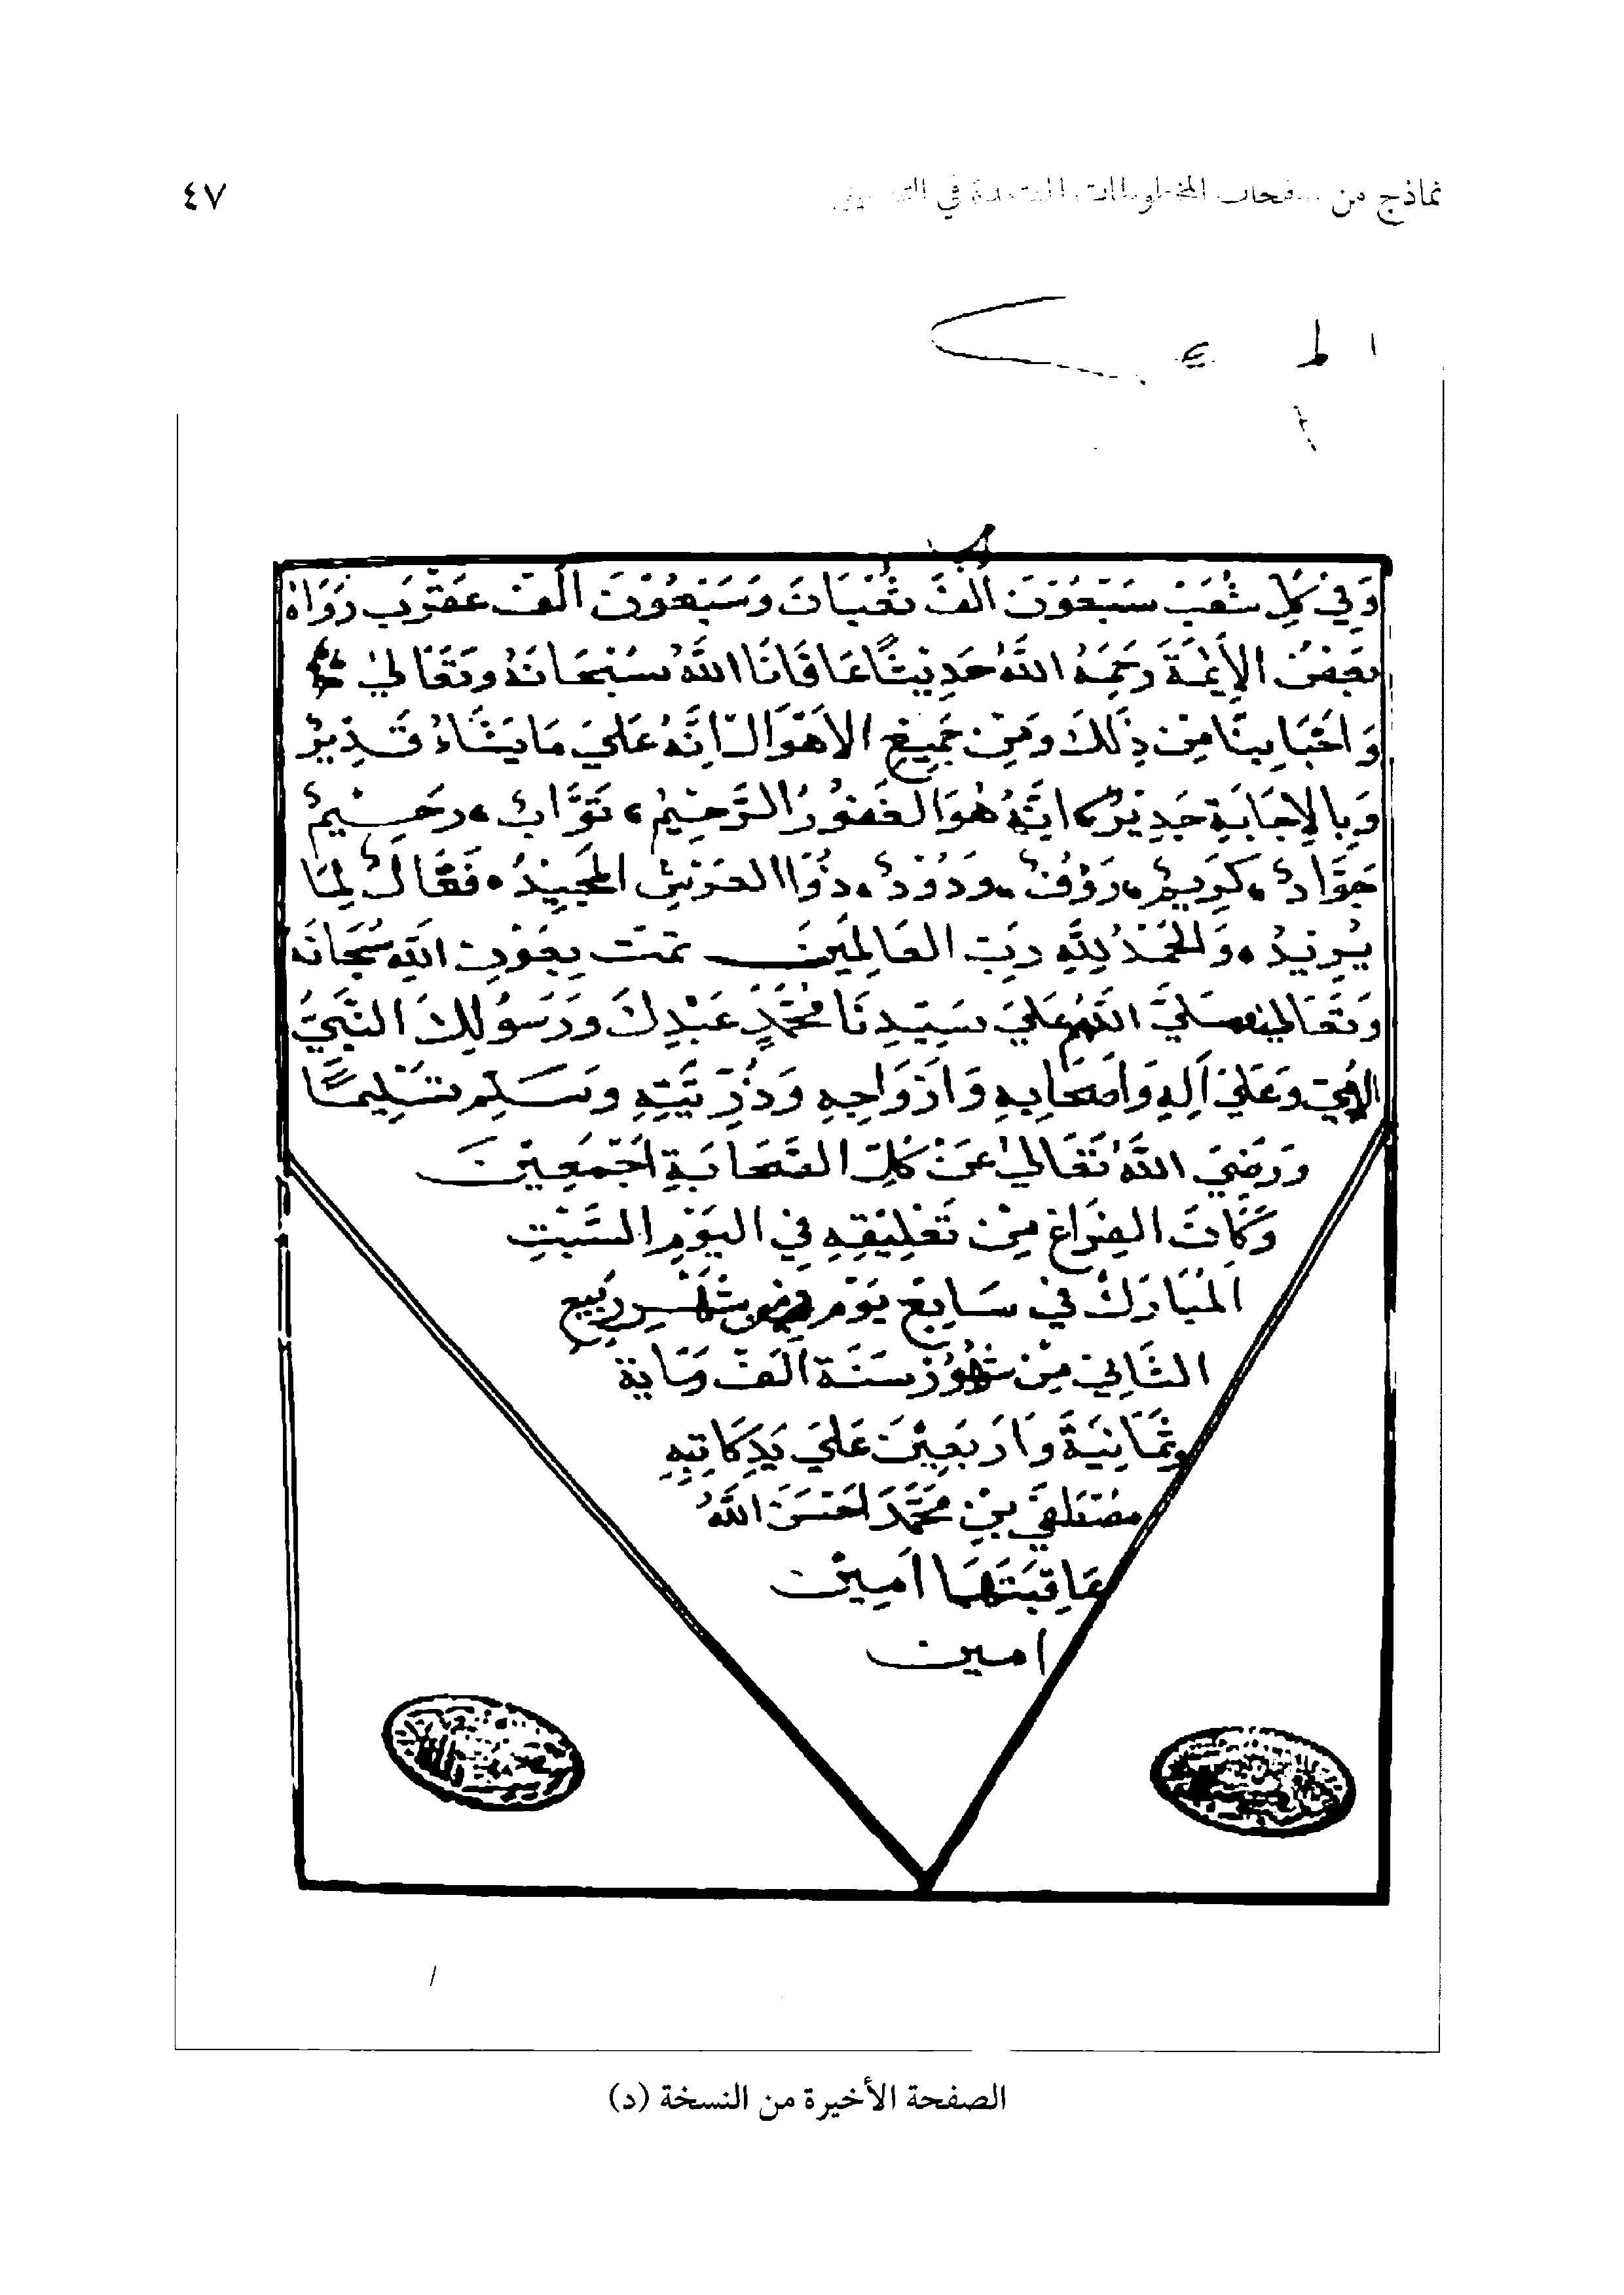 نماذج من صفحات المخطوطات المعتمدة في
٤٧
وَفِي كُلِّ شُعَبٍ سَبْعُوْنَ اَلْفَ ثُعْبَانَ وَسَبْعُوْنَ اَلْفَ عَقْرَبَ رَوَاهُ
بَعْضُ الاَيِمَّةَ رَحِمَهُ اللَّهُ حَدِيثًا عَافَانَا اللَّهُ سُبْحَانَهُ وَتَعَالَى
وَاَحْبَابِنَا مِنْ ذٰلِكَ وَمِنْ جَمِيعِ الاَهْوَالِ اِنَّهُ عَلَيَ مَا يَشَاءُ قَدِيْرٌ
وَبِالاِجَابَةِ جَدِيْرٌ، اِنَّهُ هُوَ الغَفُورُ الرَّحِيْمُ، تَوَّابٌ، رَحِيْمٌ
جَوَّادٌ، كَرِيمٌ، رَؤُفٌ، وَدُوْدٌ، ذُوْا العَرْشِ المَجِيْدُ، فَعَّالٌ لِمَا
يُرِيْدُ، وَالحَمْدُ لِلّٰهِ رَبِّ العَالَمِيْنَ تمت بِعَوْنِ اللّٰهِ سُبْحَانَه
وَتَعَالَى وَصَلَّيَ اللَّهُ عَلَيَ سَيِّدِنَا مُحَمَّدٍ عَبْدِكَ وَرَسُوْلِكَ النَّبِيِّ
الاُمِّيّ وَعَلَيَ اٰلِهِ وَاَصْحَابِهِ وَاَزْوَاجِهِ وَذُرِّيَّتِهِ وَسَلِّمْ تَسْلِيمًا
وَرَضِيَ اللَّهُ تَعَالَى عَنْ كُلِّ الصَّحَابَةِ اَجْمَعِيْنَ
وَكَانَ الفِرَاغ مِنْ تَعْلِيْقِهِ فِي اليَوْمِ السَّبْتِ
المُبَارَكْ فِي سَابِعْ يَوْم مِنْ شَهْرِ رَبِيع
الثَّانِي مِنْ شُهُوْر سَنَةَ اَلْفْ وَمَاية
وثَمَانِيَةَ وَاَرْبَعِيْنَ عَلَيَ يَدِ كَاتِبِهِ
مُصْطَفَى بِنْ مُحَمَّدْ اَحْسَنَ اللَّهُ
عَاقِبَتَهَا اَمِيْنْ
امين
الصفحة الأخيرة من النسخة (د)